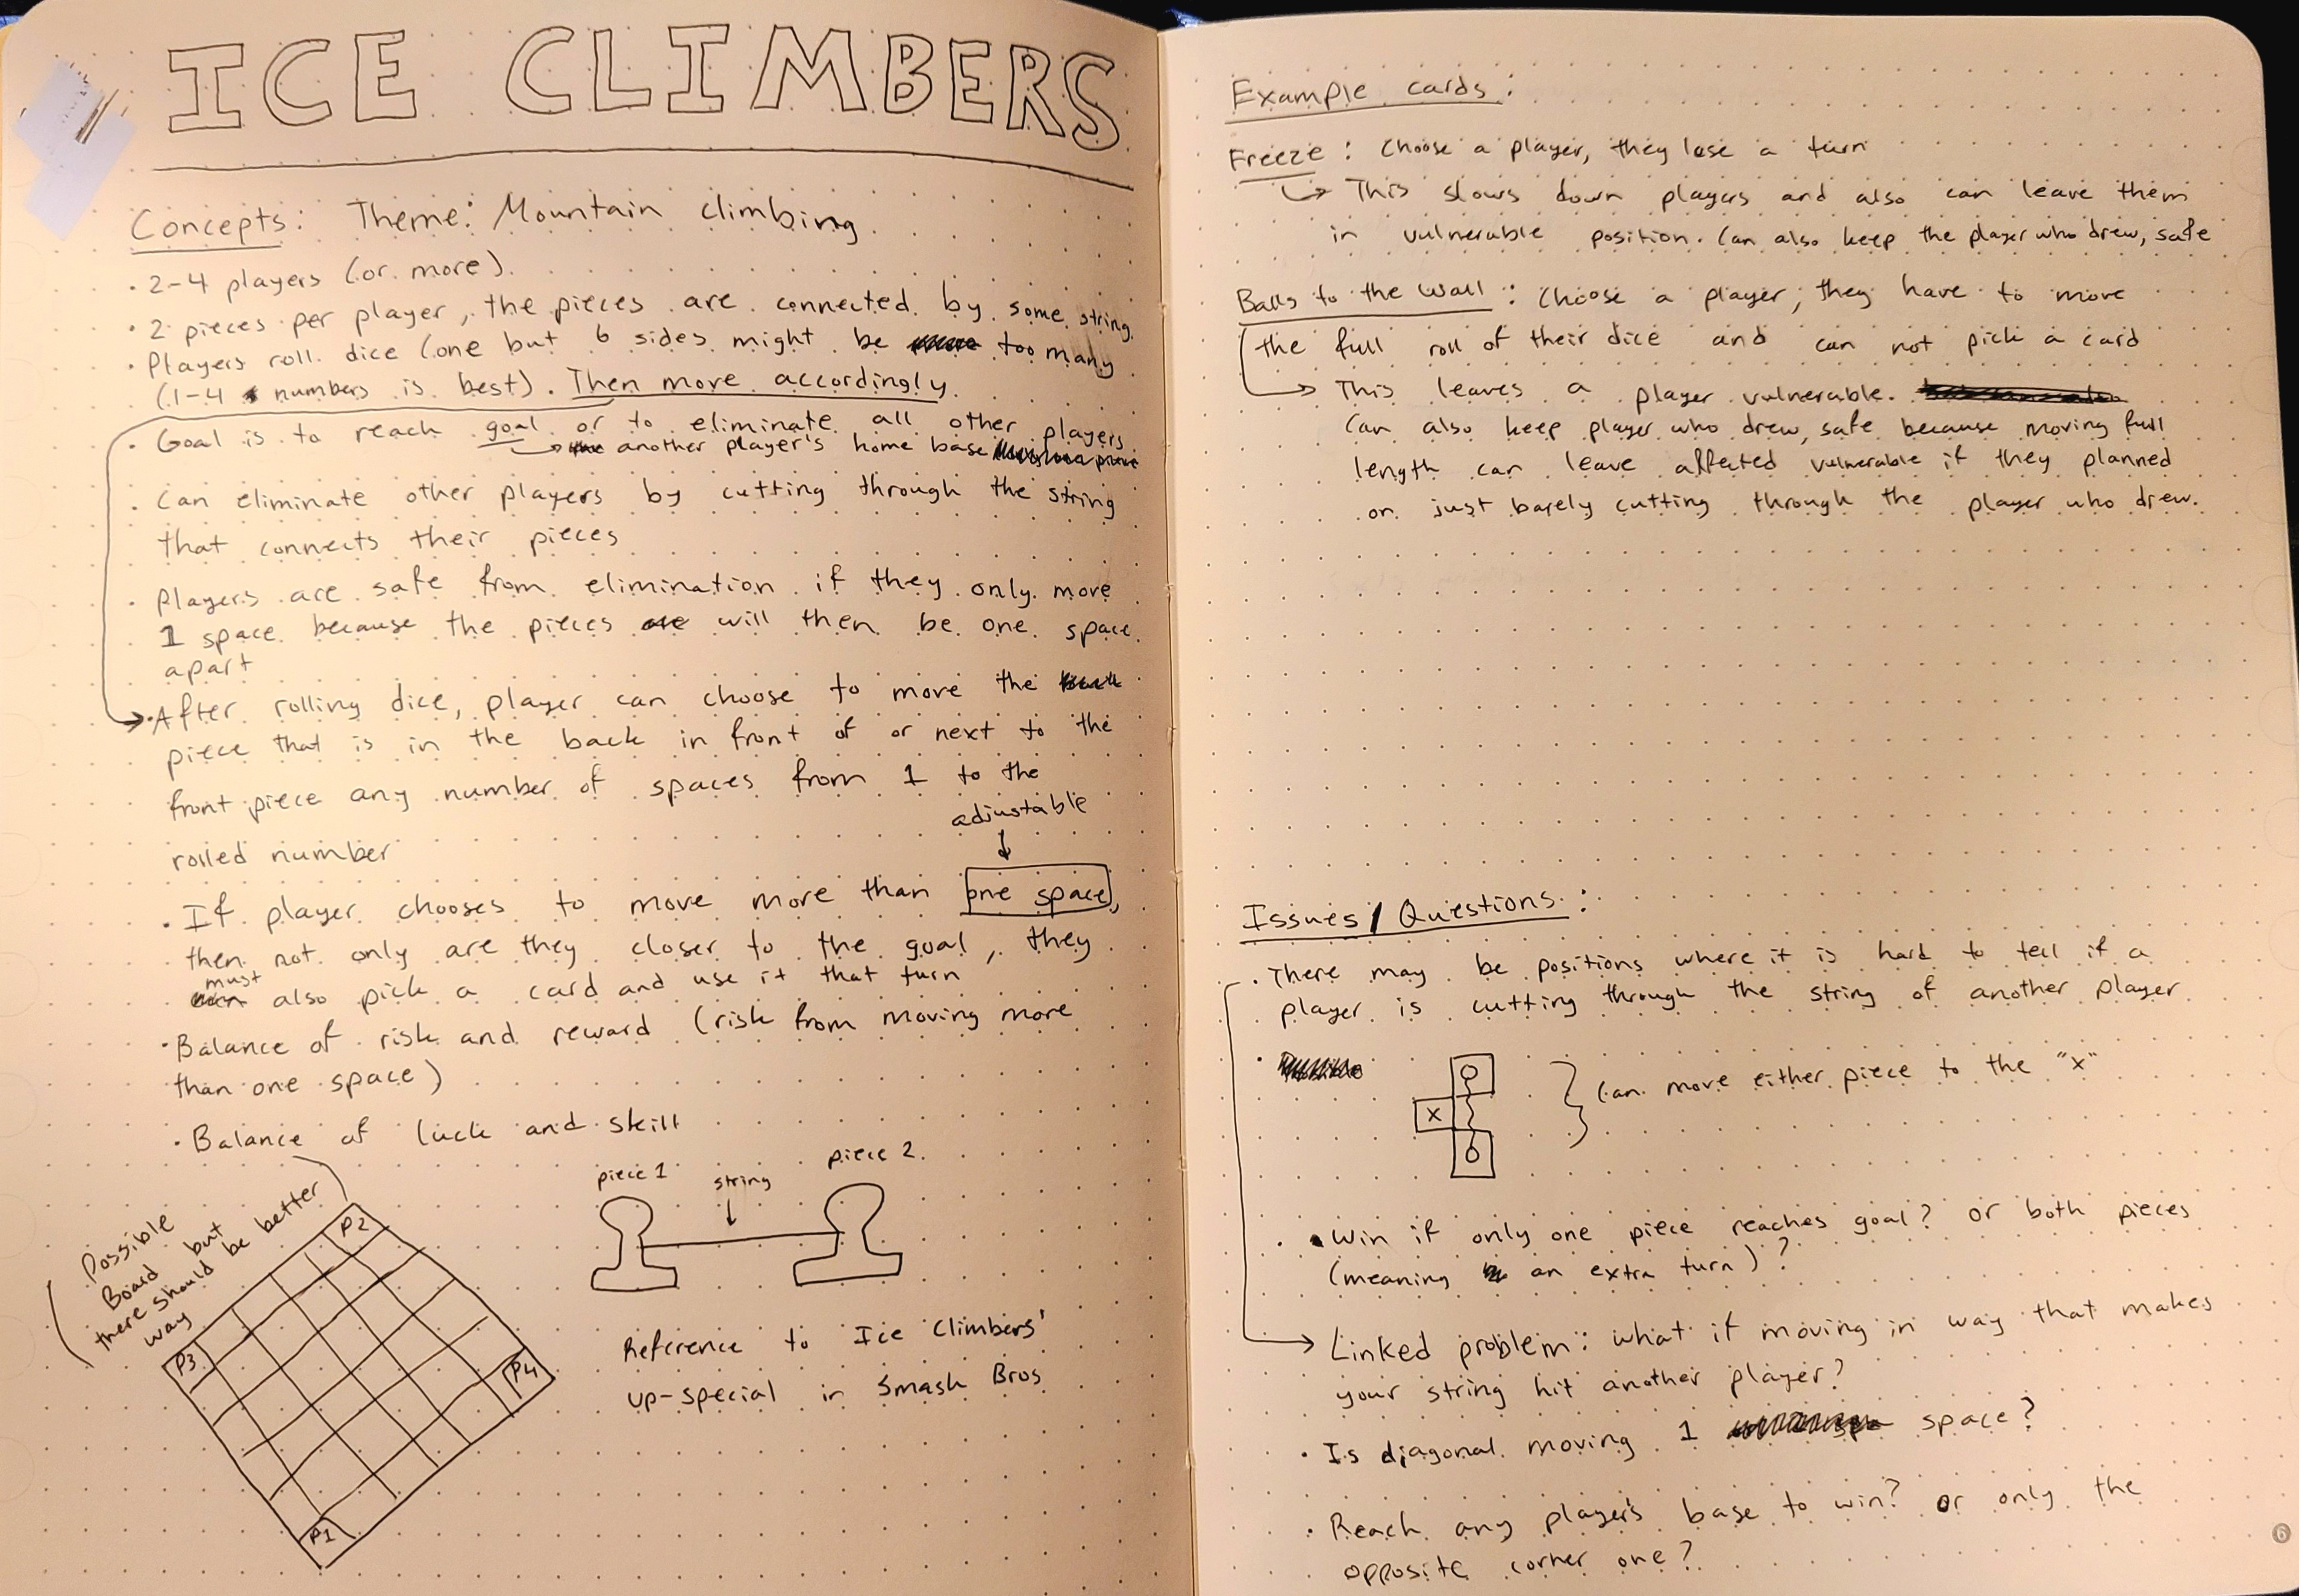 ICE CLIMBERS
Concepts: Theme: Mountain climbing
• 2-4 players (or more).
• 2 pieces per player, the pieces are connected by some string
• Players roll dice (one but 6 sides might be too many
(1-4 numbers is best). Then move accordingly.
• Goal is to reach goal or to eliminate all other players
another player's home base
• Can eliminate other players by cutting through the string
that connects their pieces
• Players are safe from elimination if they only move
1 space because the pieces will then be one space
apart
• After rolling dice, player can choose to move the
piece that is in the back in front of or next to the
front piece any number of spaces from 1 to the
adjustable
rolled number
• If player chooses to move more than one space,
then not only are they closer to the goal, they
must
also pick a card and use it that turn
• Balance of risk and reward (risk from moving more
than one space)
• Balance of luck and skill
Possible
Board but
there should be better
way
P2
P3
P4
P1
piece 1
string
piece 2
Reference to Ice Climbers'
up-special in Smash Bros
Example cards:
Freeze: Choose a player, they lose a turn
This slows down players and also can leave them
in vulnerable position. Can also keep the player who drew, safe
Balls to the Wall: Choose a player, they have to move
the full roll of their dice and can not pick a card
This leaves a player vulnerable.
Can also keep player who drew, safe because moving full
length can leave affected vulnerable if they planned
on just barely cutting through the player who drew.
Issues/Questions:
• There may be positions where it is hard to tell if a
player is cutting through the string of another player
•
X
Can move either piece to the "x"
• Win if only one piece reaches goal? or both pieces
(meaning an extra turn)?
Linked problem: what if moving in way that makes
your string hit another player?
• Is diagonal moving 1 space?
• Reach any player's base to win? or only the
opposite corner one?
6